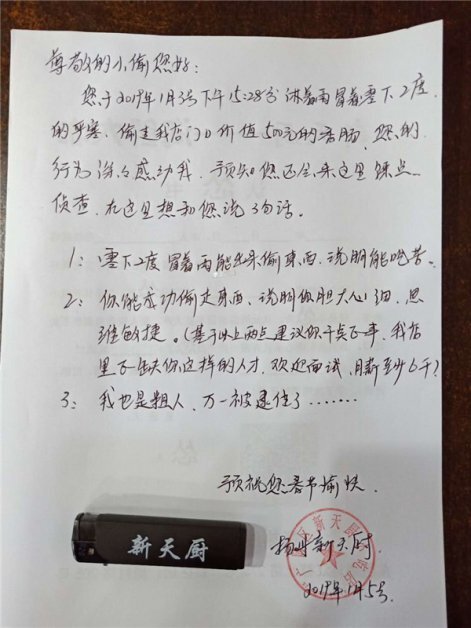 尊敬的小偷您好：
您于2019年1月3号下午15:28分淋着雨冒着零下2度
的严寒、偷走我店门口价值500元的香肠、您的
行为深深感动我、预知您还会来这里踩点
侦查、在这里想和您说3句话。
1：零下2度冒着雨能出来偷东西、说明能吃苦。
2：你能成功偷走东西、说明你胆大心细、思
维敏捷。（基于以上两点建议你干点正事、我店
里正缺你这样的人才、欢迎面试、月薪至少6千）
3：我也是粗人、万一被逮住了……
预祝您春节愉快、
新天厨
扬州新天厨、
2019年1月5号、